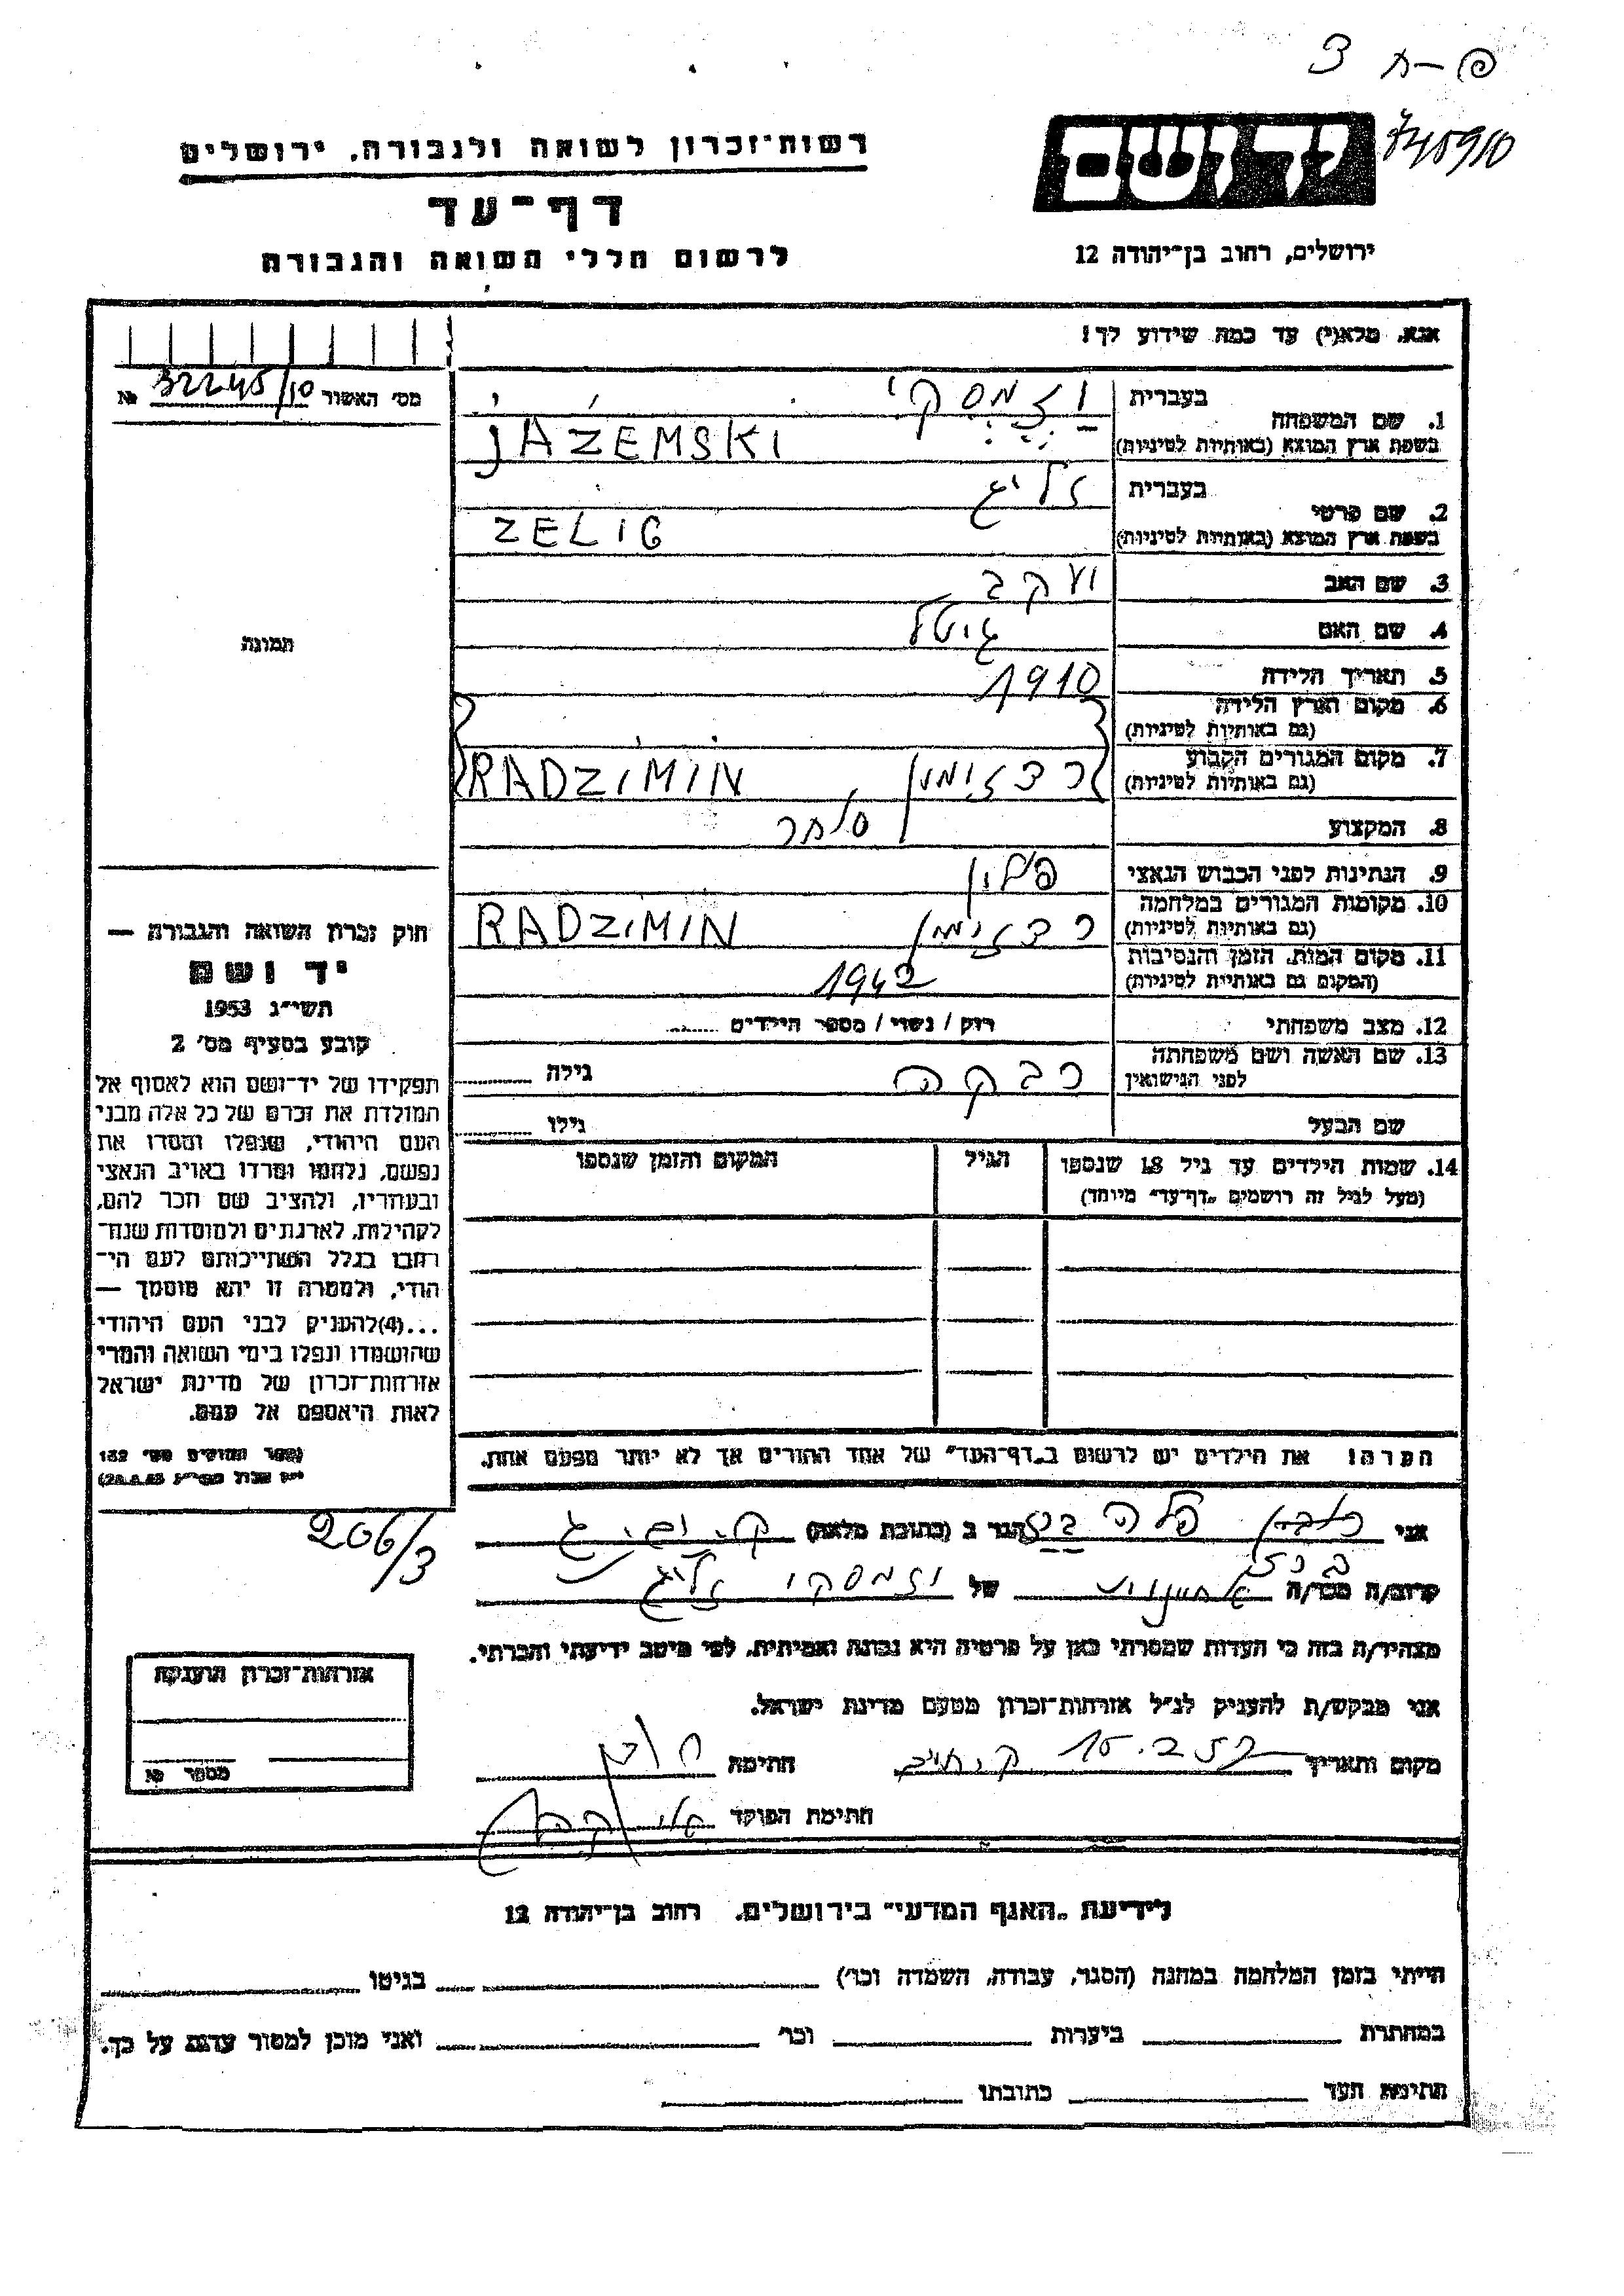 פ-ת 3
745910
יד ושם
רשות־זכרון לשואה ולגבורה, ירושלים
דף־עד
לרשום חללי השואה והגבורה
ירושלים, רחוב בן־יהודה 12
אנא, מלא(י) עד כמה שידוע לך!
מס׳ האשור 32245/10 №
1. שם המשפחה
בעברית יזמסקי
בשפת ארץ המוצא (באותיות לטיניות) JAZEMSKI
2. שם פרטי
בעברית זליג
בשפת ארץ המוצא (באותיות לטיניות) ZELIG
3. שם האב יעקב
4. שם האם גיטל
5. תאריך הלידה 1910
6. מקום וארץ הלידה
(גם באותיות לטיניות)
7. מקום המגורים הקבוע
(גם באותיות לטיניות) רדזימין RADZIMIN
8. המקצוע סוחר
9. הנתינות לפני הכבוש הנאצי פולין
10. מקומות המגורים במלחמה
(גם באותיות לטיניות) רדזימין RADZIMIN
11. מקום המות, הזמן והנסיבות
(המקום גם באותיות לטיניות) 1942
12. מצב משפחתי רוק / נשוי / מספר הילדים
13. שם האשה ושם משפחתה
לפני הנישואין רבקה גילה
שם הבעל גילו
14. שמות הילדים עד גיל 18 שנספו
(מעל לגיל זה רושמים „דף־עד״ מיוחד)
הגיל
המקום והזמן שנספו
תמונה
חוק זכרון השואה והגבורה —
יד ושם
תשי״ג 1953
קובע בסעיף מס׳ 2
תפקידו של יד־ושם הוא לאסוף אל
המולדת את זכרם של כל אלה מבני
העם היהודי, שנפלו ומסרו את
נפשם, נלחמו ומרדו באויב הנאצי
ובעוזריו, ולהציב שם וזכר להם,
לקהילות, לארגונים ולמוסדות שנח־
רבו בגלל השתייכותם לעם הי־
הודי, ולמטרה זו יהא מוסמך —
...(4)להעניק לבני העם היהודי
שהושמדו ונפלו בימי השואה והמרי
אזרחות־זכרון של מדינת ישראל
לאות היאספם אל עמם.
(ספר החוקים מס׳ 132
הערה! את הילדים יש לרשום ב„דף־העד״ של אחד ההורים אך לא יותר מפעם אחת.
206/3
אני פלה הגר ב (כתובת מלאה)
קרוב/ה מכר/ה של יזמסקי זליג
מצהיר/ה בזה כי העדות שמסרתי כאן על פרטיה היא נכונה ואמיתית, לפי מיטב ידיעתי והכרתי.
אני מבקש/ת להעניק לנ״ל אזרחות־זכרון מטעם מדינת ישראל.
מקום ותאריך 15.2.57 חתימה
חתימת הפוקד
אזרחות־זכרון הוענקה
מספר №
לידיעת „האגף המדעי״ בירושלים, רחוב בן־יהודה 12
הייתי בזמן המלחמה במחנה (הסגר, עבודה, השמדה וכו׳) בגיטו
במחתרת ביערות וכו׳ ואני מוכן למסור עדות על כך.
חתימת העד כתובתו